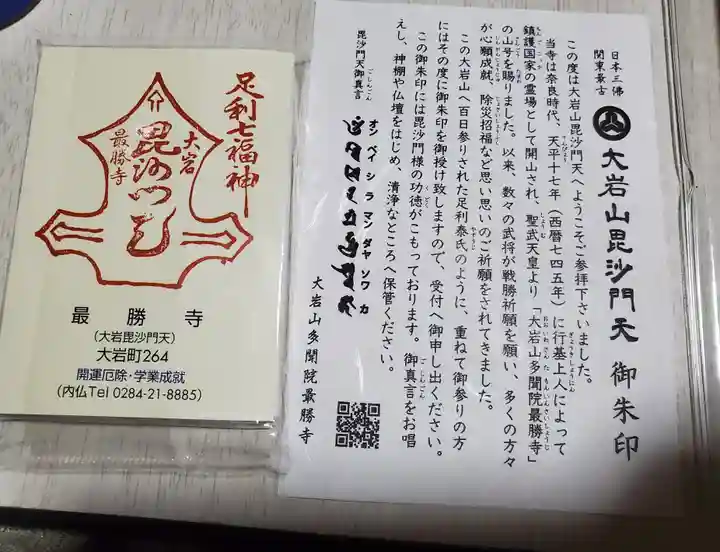 足利七福神
大岩
毘沙門天
最勝寺
最勝寺
(大岩毘沙門天)
大岩町264
開運厄除・学業成就
(内仏Tel 0284-21-8885)
日本三佛
関東最古
大岩山毘沙門天 御朱印
この度は大岩山毘沙門天へようこそご参拝下さいました。
当寺は奈良時代、天平十七年(西暦七四五年)に行基上人によって
鎮護国家の霊場として開山され、聖武天皇より「大岩山多聞院最勝寺」
の山号を賜りました。以来、数々の武将が戦勝祈願を願い、多くの方々
が心願成就、除災招福など思い思いのご祈願をされてきました。
この大岩山へ百日参りされた足利泰氏のように、重ねて御参りの方
にはその度に御朱印を御授け致しますので、受付へ御申し出ください。
この御朱印には毘沙門様の功徳がこもっております。御真言をお唱
えし、神棚や仏壇をはじめ、清浄なところへ保管ください。
毘沙門天御真言
オン ベイ シ ラ マン ダヤ ソワ カ
大岩山多聞院最勝寺